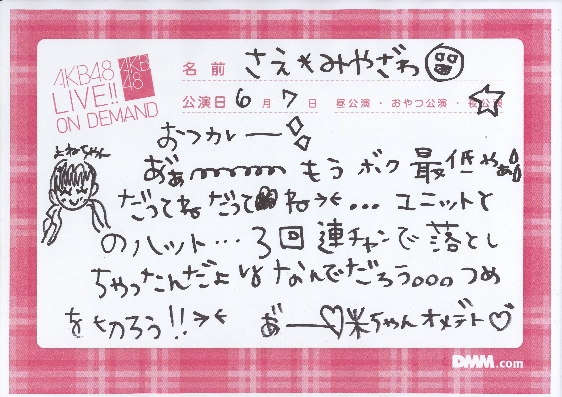 AKB48
LIVE!!
ON DEMAND
AKB
48
名前 さえもみやざわ
公演日 6月 7日 昼公演・おやつ公演・夜公演
おつカレー
よねちゃん
あ゛ぁ もう ボク 最低 やぁ
だってね だって ね><... ユニットと
のハット... 3回連チャンで落とし
ちゃったんだよ なんでだろう。。。つめ
を切ろう!!><
あ゛ー♡米ちゃんオメデト♡
DMM.com